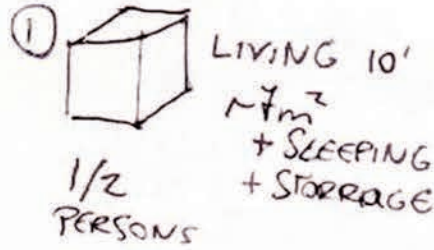 1
LIVING 10'
~7m²
+ SLEEPING
+ STORRAGE
1/2
PERSONS